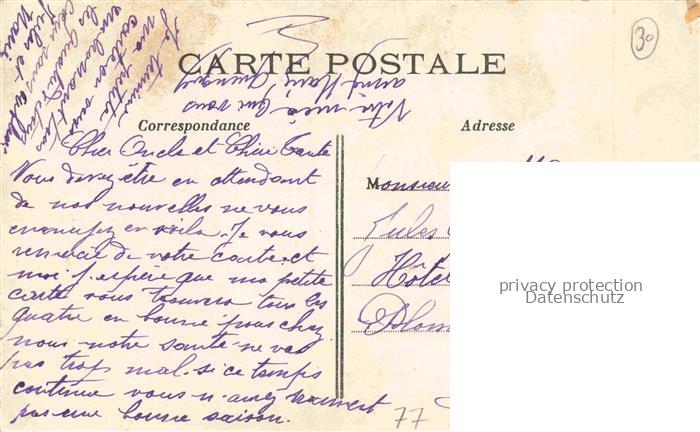 CARTE POSTALE
Correspondance
Adresse
30
Cher Oncle et Chère Tante
Vous devez être en attendant
de nos nouvelles ne vous
ennuyez en voila. Je vous
remercie de votre carte et
moi j'espère que ma petite
carte vous trouvera tous les
quatre en bonne
nous notre santé ne va
pas trop mal. si ce temps
continue vous n'aurez vraiment
pas une bonne saison.
Je termine
ma petite
carte en vous
embrassant
les
Jules et
Votre nièce que vous
aime Marie
Monsieur
Jules
Hôtel
77
privacy protection
Datenschutz